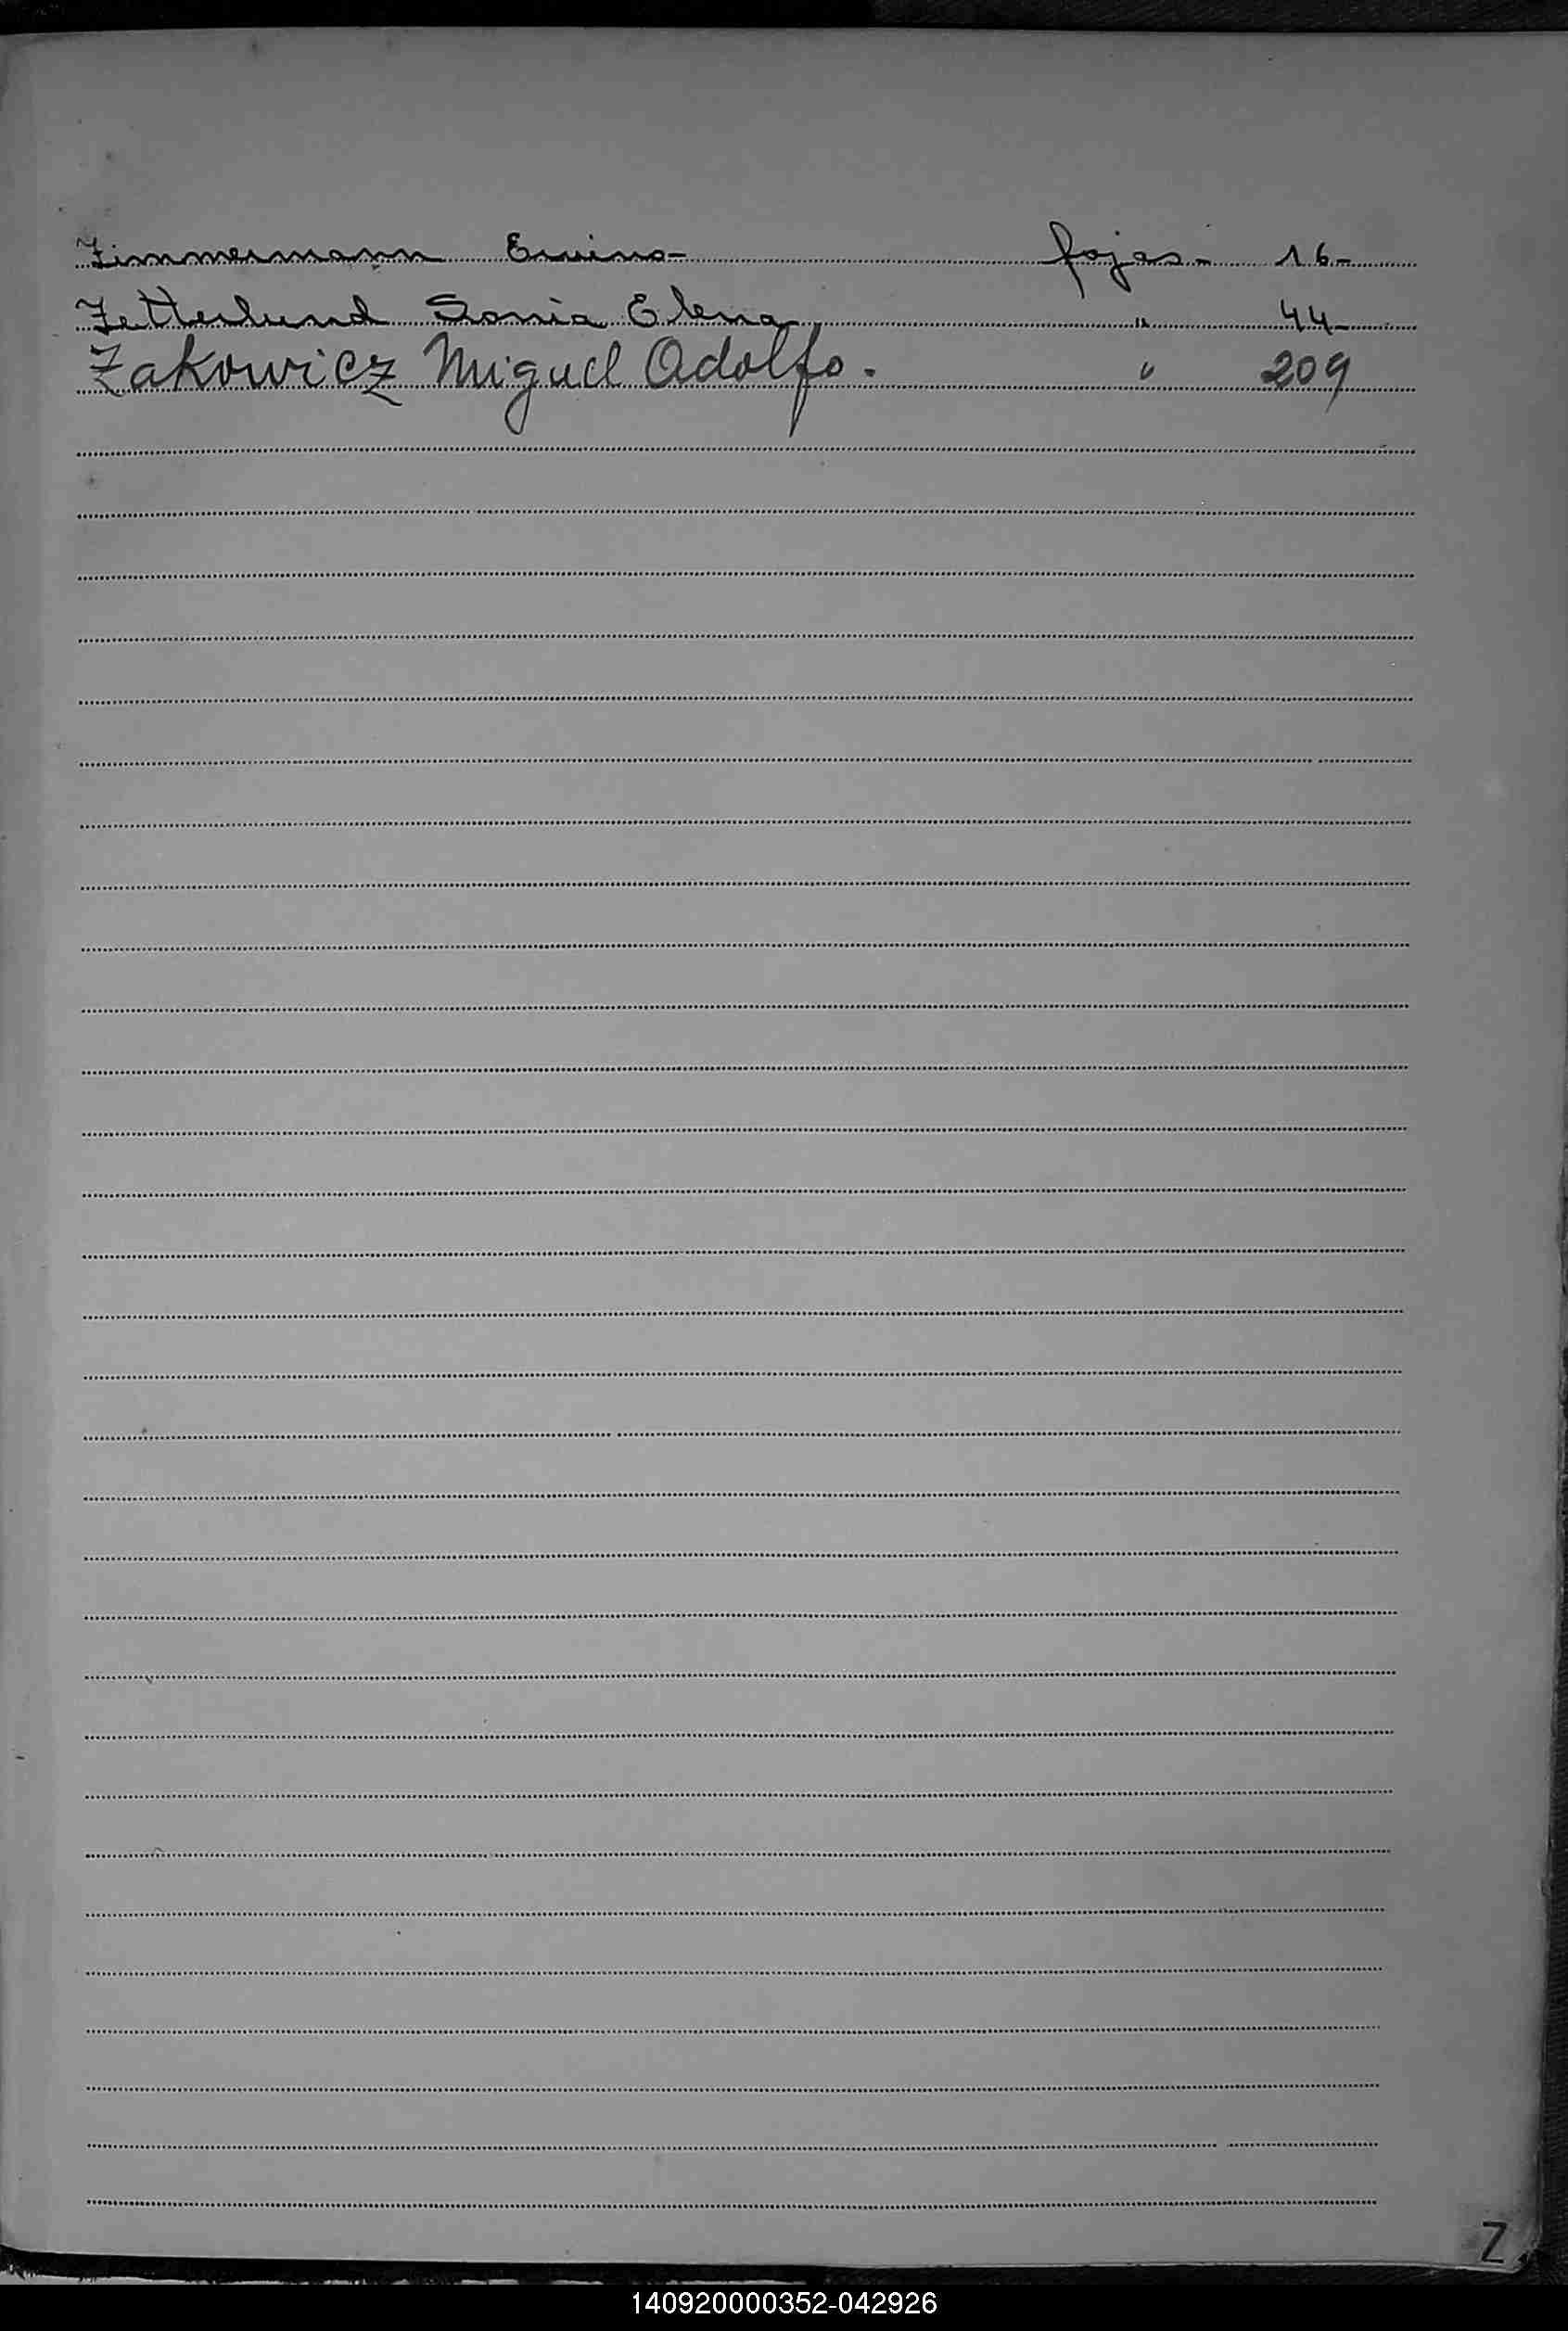 Zimmermann Erwino- fojas- 16-
Zetterlund Sonia Elena " 44-
Zakowicz Miguel Adolfo. " 209
Z
140920000352-042926